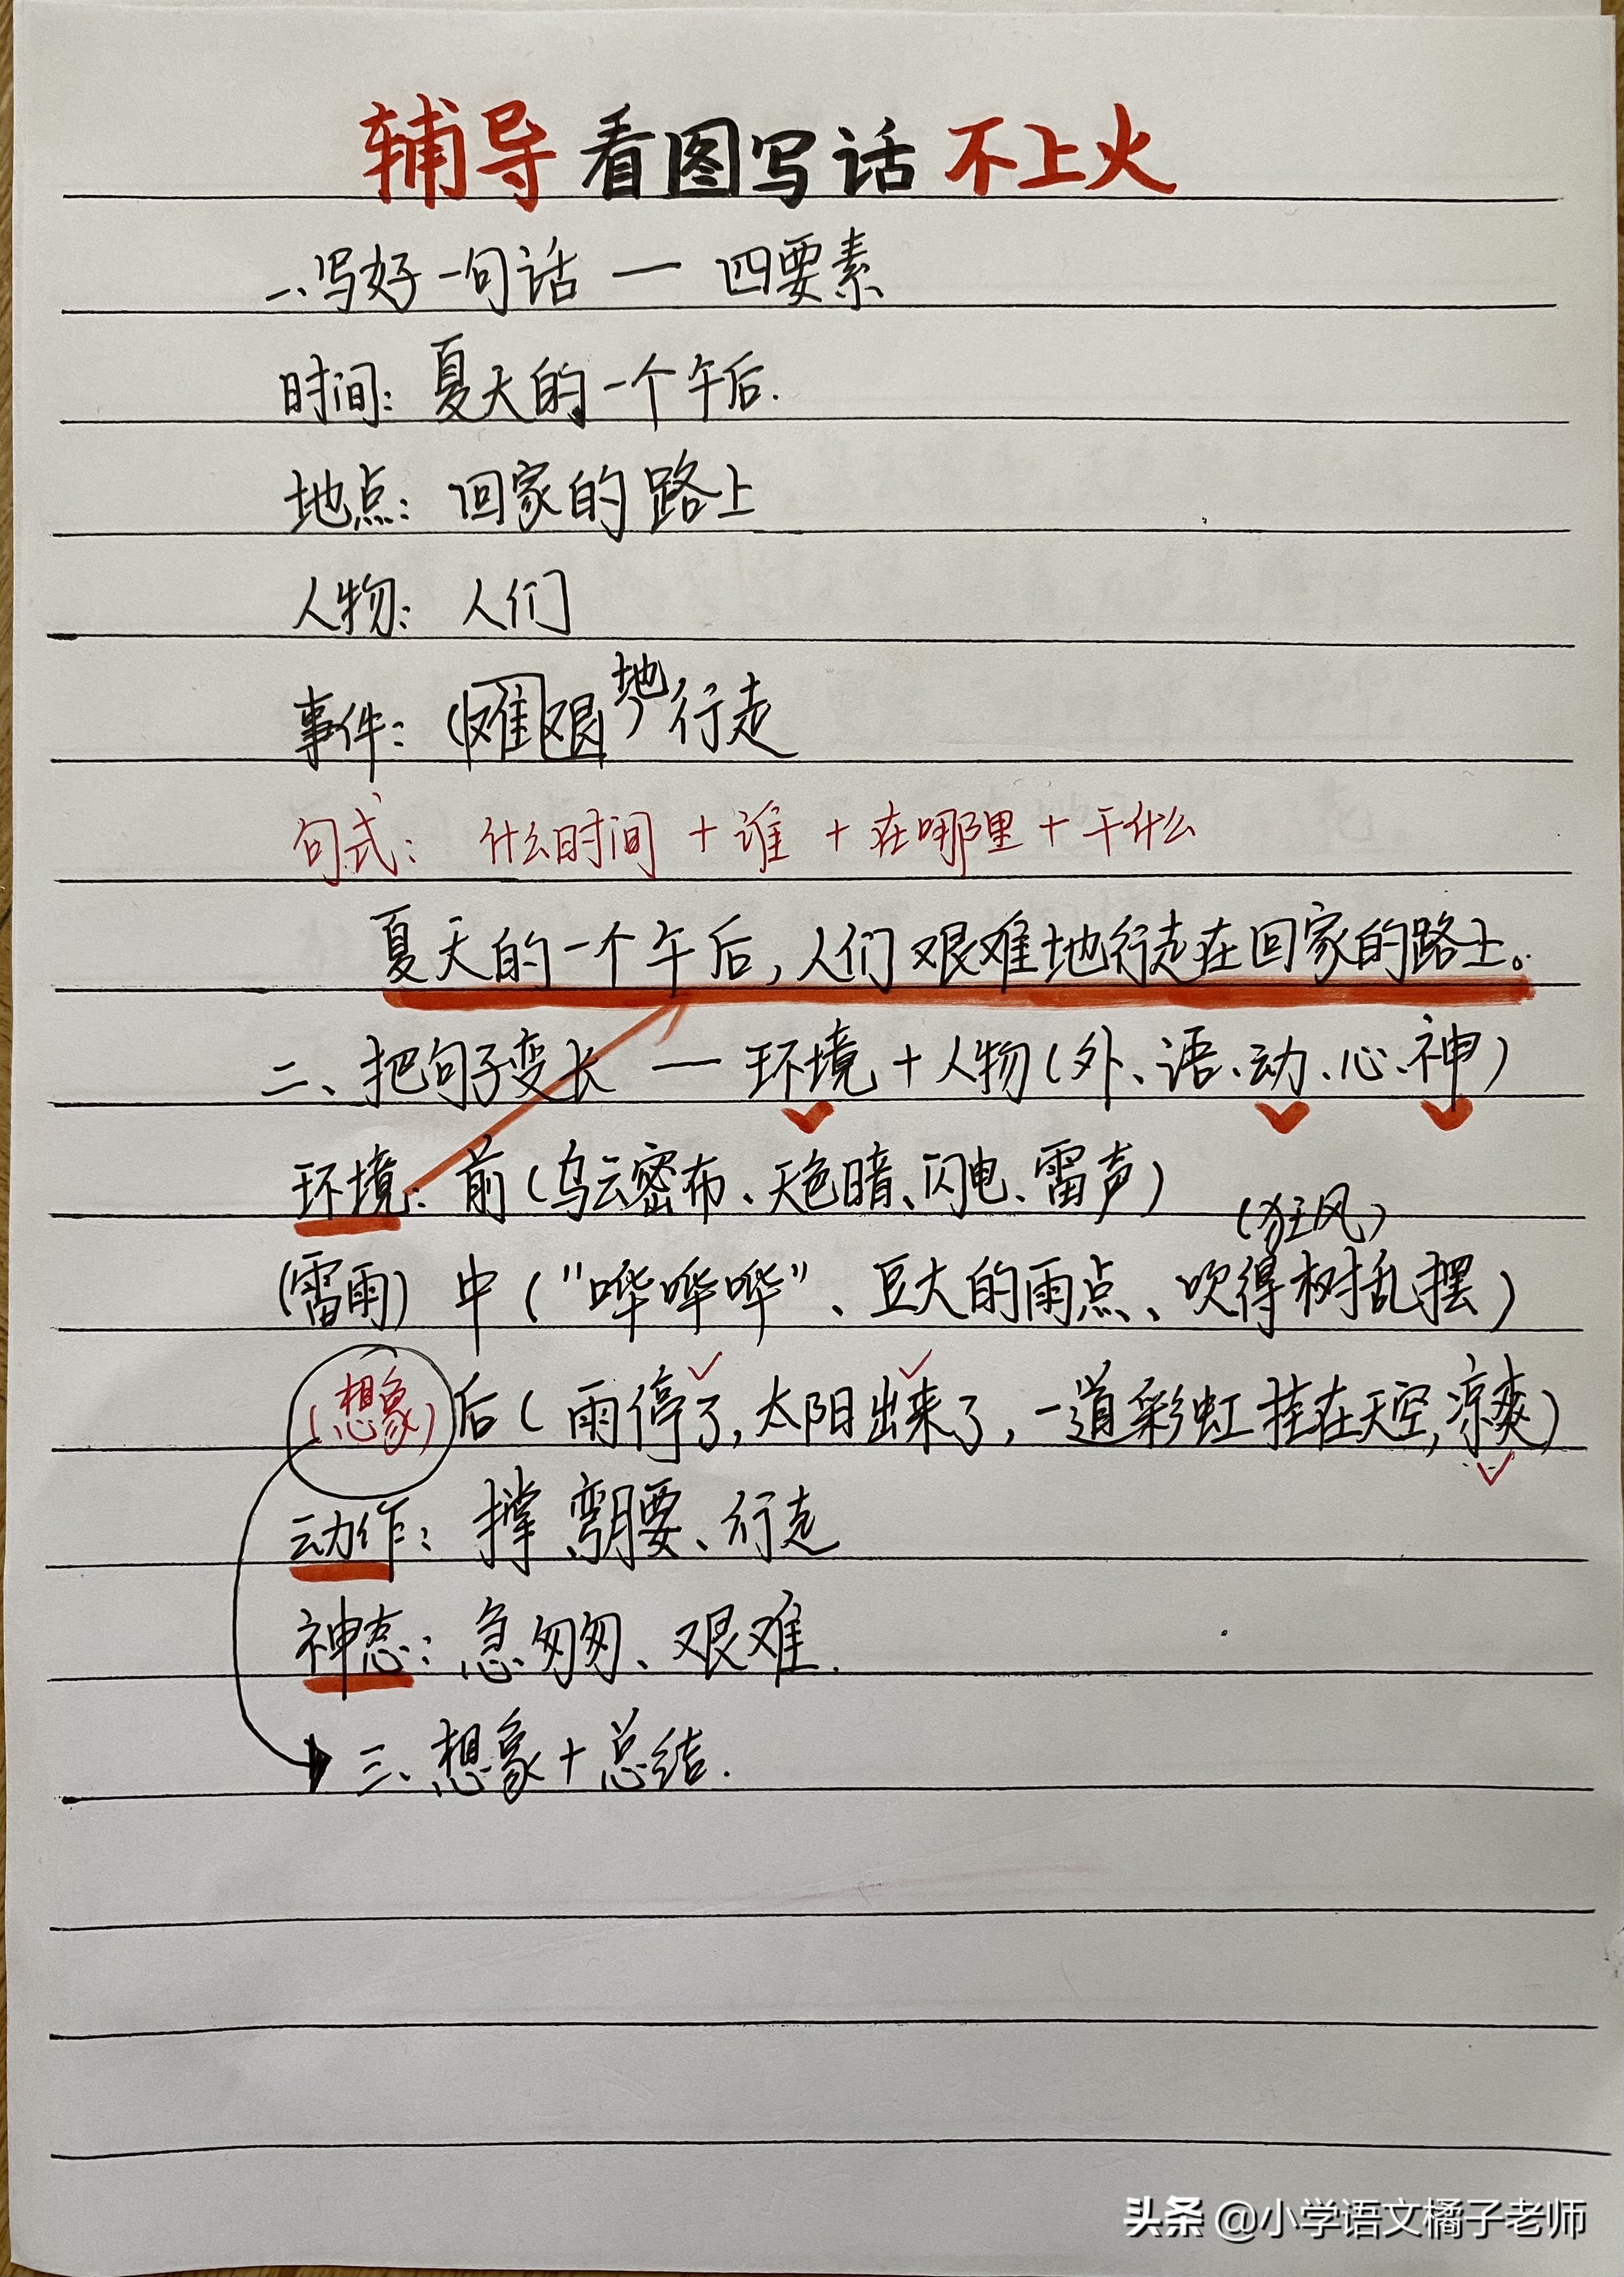 辅导看图写话不上火
一、写好一句话 — 四要素
时间：夏天的一个午后.
地点：回家的路上
人物：人们
事件：(难艰地)行走
句式：什么时间 + 谁 + 在哪里 + 干什么
夏天的一个午后，人们艰难地行走在回家的路上。
二、把句子变长 — 环境 + 人物(外、语、动、心、神)
环境：前(乌云密布、天色暗、闪电、雷声)
(狂风)
(雷雨) 中("哗哗哗"、豆大的雨点、吹得树乱摆)
(想象) 后(雨停了,太阳出来了,一道彩虹挂在天空,凉爽)
动作：撑、弯腰、行走
神态：急匆匆、艰难.
三、想象 + 总结.
头条 @小学语文橘子老师